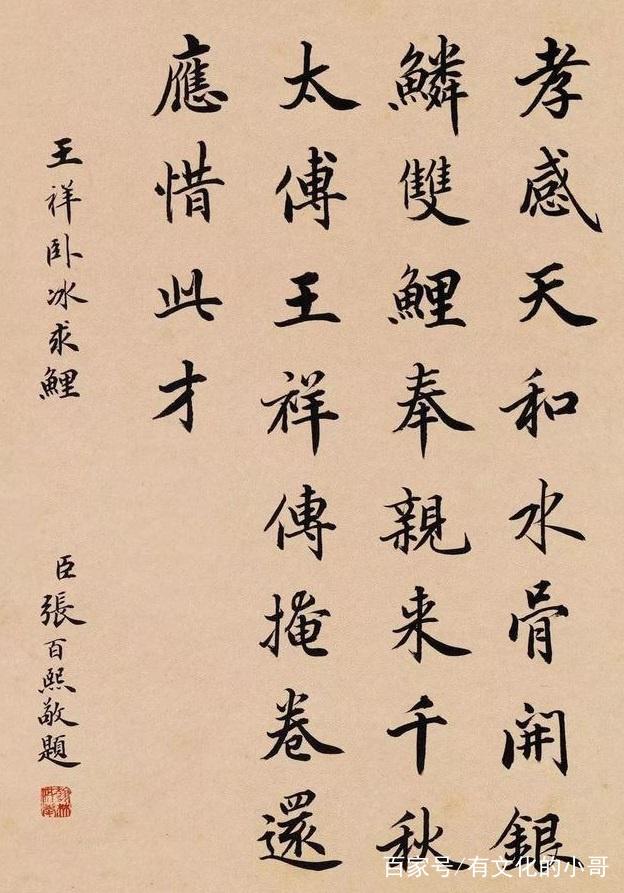 孝感天和水骨開銀
鱗雙鯉奉親来千秋
太傅王祥傳掩卷還
應惜此才
王祥卧冰求鯉
臣張百熙敬題
百家号/有文化的小哥